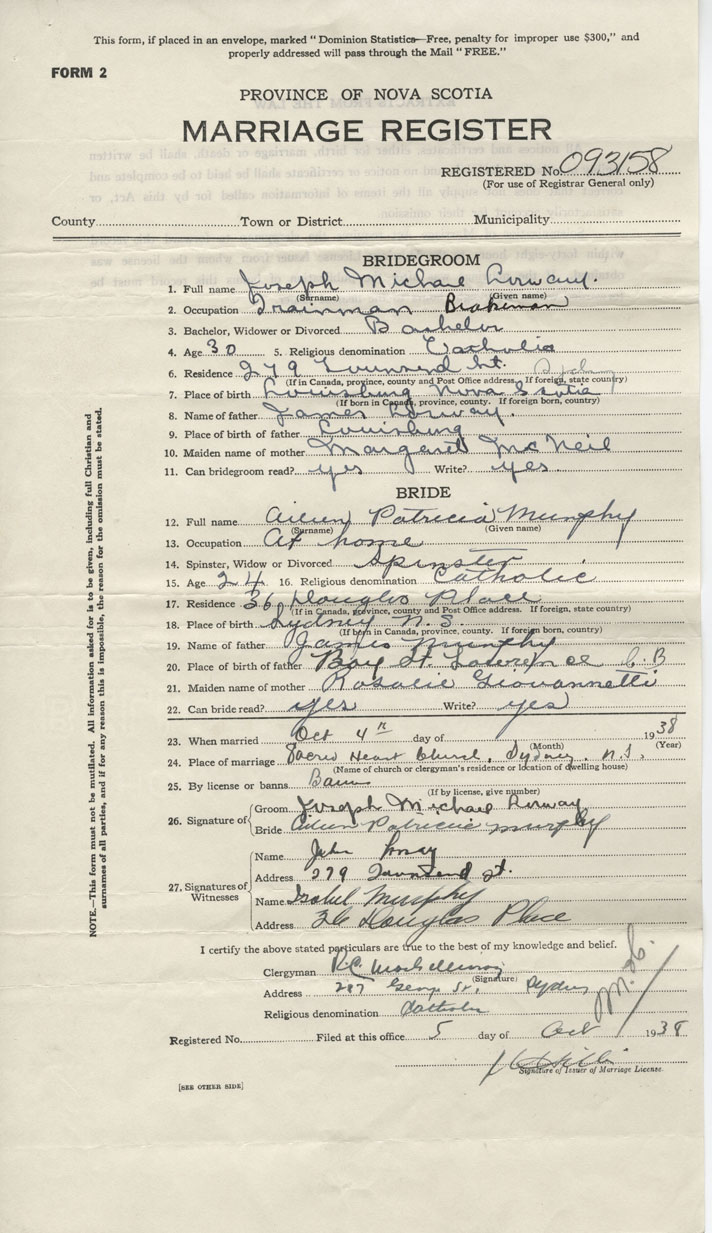 This form, if placed in an envelope, marked "Dominion Statistics—Free, penalty for improper use $300," and
properly addressed will pass through the Mail "FREE."
FORM 2
PROVINCE OF NOVA SCOTIA
MARRIAGE REGISTER
REGISTERED No. 093158
(For use of Registrar General only)
County Town or District Municipality
BRIDEGROOM
1. Full name Joseph Michael
(Surname) (Given name)
2. Occupation Trainman Brakeman
3. Bachelor, Widower or Divorced Bachelor
4. Age 30 5. Religious denomination Catholic
6. Residence 279 Townsend St. Sydney
(If in Canada, province, county and Post Office address. If foreign, state country)
7. Place of birth Louisburg Nova Scotia
(If born in Canada, province, county. If foreign born, country)
8. Name of father James
9. Place of birth of father Louisburg
10. Maiden name of mother Margaret McNeil
11. Can bridegroom read? yes Write? yes
BRIDE
12. Full name Aileen Patricia Murphy
(Surname) (Given name)
13. Occupation At home
14. Spinster, Widow or Divorced Spinster
15. Age 24 16. Religious denomination Catholic
17. Residence 36 Douglas Place
(If in Canada, province, county and Post Office address. If foreign, state country)
18. Place of birth Sydney N.S.
(If born in Canada, province, county. If foreign born, country)
19. Name of father James Murphy
20. Place of birth of father Bay St Lawrence C.B
21. Maiden name of mother Rosalie Giovannetti
22. Can bride read? yes Write? yes
23. When married Oct 4th day of 1938
(Month) (Year)
24. Place of marriage Sacred Heart Church, Sydney, N.S.
(Name of church or clergyman's residence or location of dwelling house)
25. By license or banns Banns
(If by license, give number)
26. Signature of
Groom Joseph Michael
Bride Aileen Patricia Murphy
27. Signatures of Witnesses
Name John
Address 279 Townsend St.
Name Isabel Murphy
Address 36 Douglas Place
I certify the above stated particulars are true to the best of my knowledge and belief.
Clergyman
(Signature)
Address 287 George St., Sydney
Religious denomination Catholic
Registered No. Filed at this office 5 day of Oct 1938
Signature of Issuer of Marriage License.
[SEE OTHER SIDE]
NOTE.—This form must not be mutilated. All information asked for is to be given, including full Christian and
surnames of all parties, and if for any reason this is impossible, the reason for the omission must be stated.